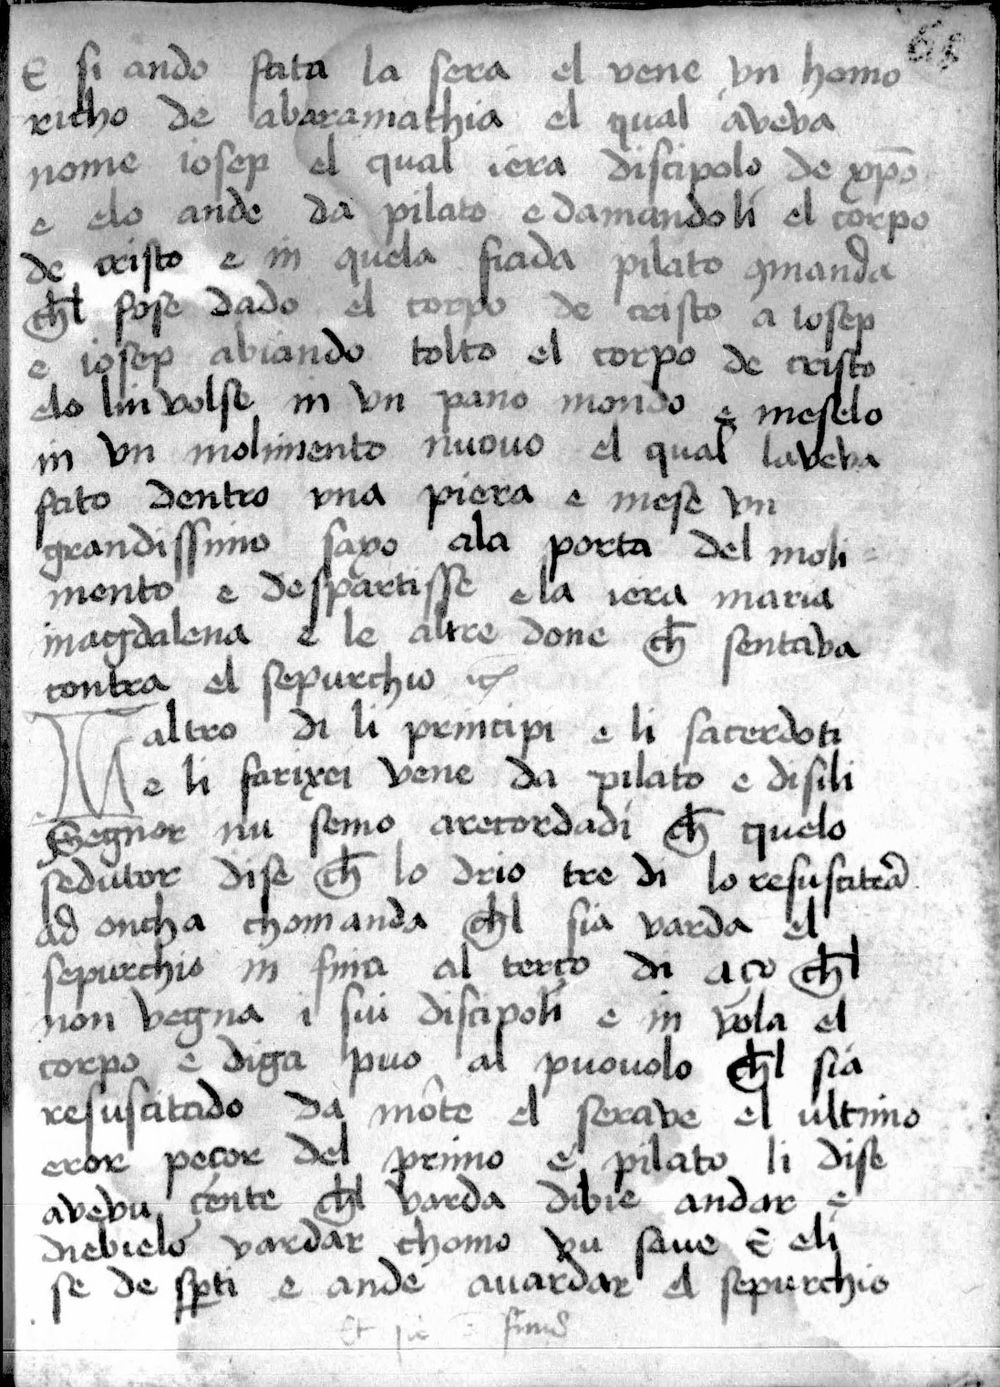 E si ando fata la sera el vene vn homo
richo de abaramathia el qual aveva
nome iosep el qual iera discipolo de xp̄o
e elo ande da pilato e damandoli el corpo
de cristo e in quela fiada pilato 9manda
ch̄l fose dado el corpo de cristo a iosep
e iosep abiando tolto el corpo de cristo
elo lin volse in vn pano mondo e meselo
in vn molimento nuovo el qual laveva
fato dentro vna piera e mese vn
grandissimo saxo ala porta del moli=
mento e despartisse ela iera maria
magdalena e le altre done ch̄ sentava
contra el sepurchio
altro di li principi e li sacerdoti
e li farixei vene da pilato e disili
Segnor nu semo arecordadi ch̄ quelo
sedutor dise ch̄ lo drio tre di lo resusitera
ad oncha chomanda ch̄l sia varda el
sepurchio in fina al terço di aço ch̄l
non vegna i sui discipoli e in vola el
corpo e diga puo al puovolo ch̄l sia
resusitado da mōte el serave el ultimo
eror peçor del primo e pilato li dise
avevu çente ch̄l varda dibie andar e
diebielo vardar chomo vu save E eli
se de sp̱ti e ande avardar el sepurchio